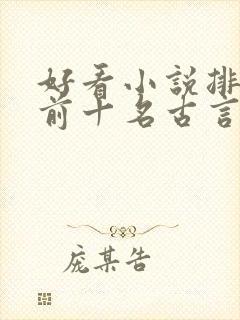 好看小說排
前十名古言
庞某告